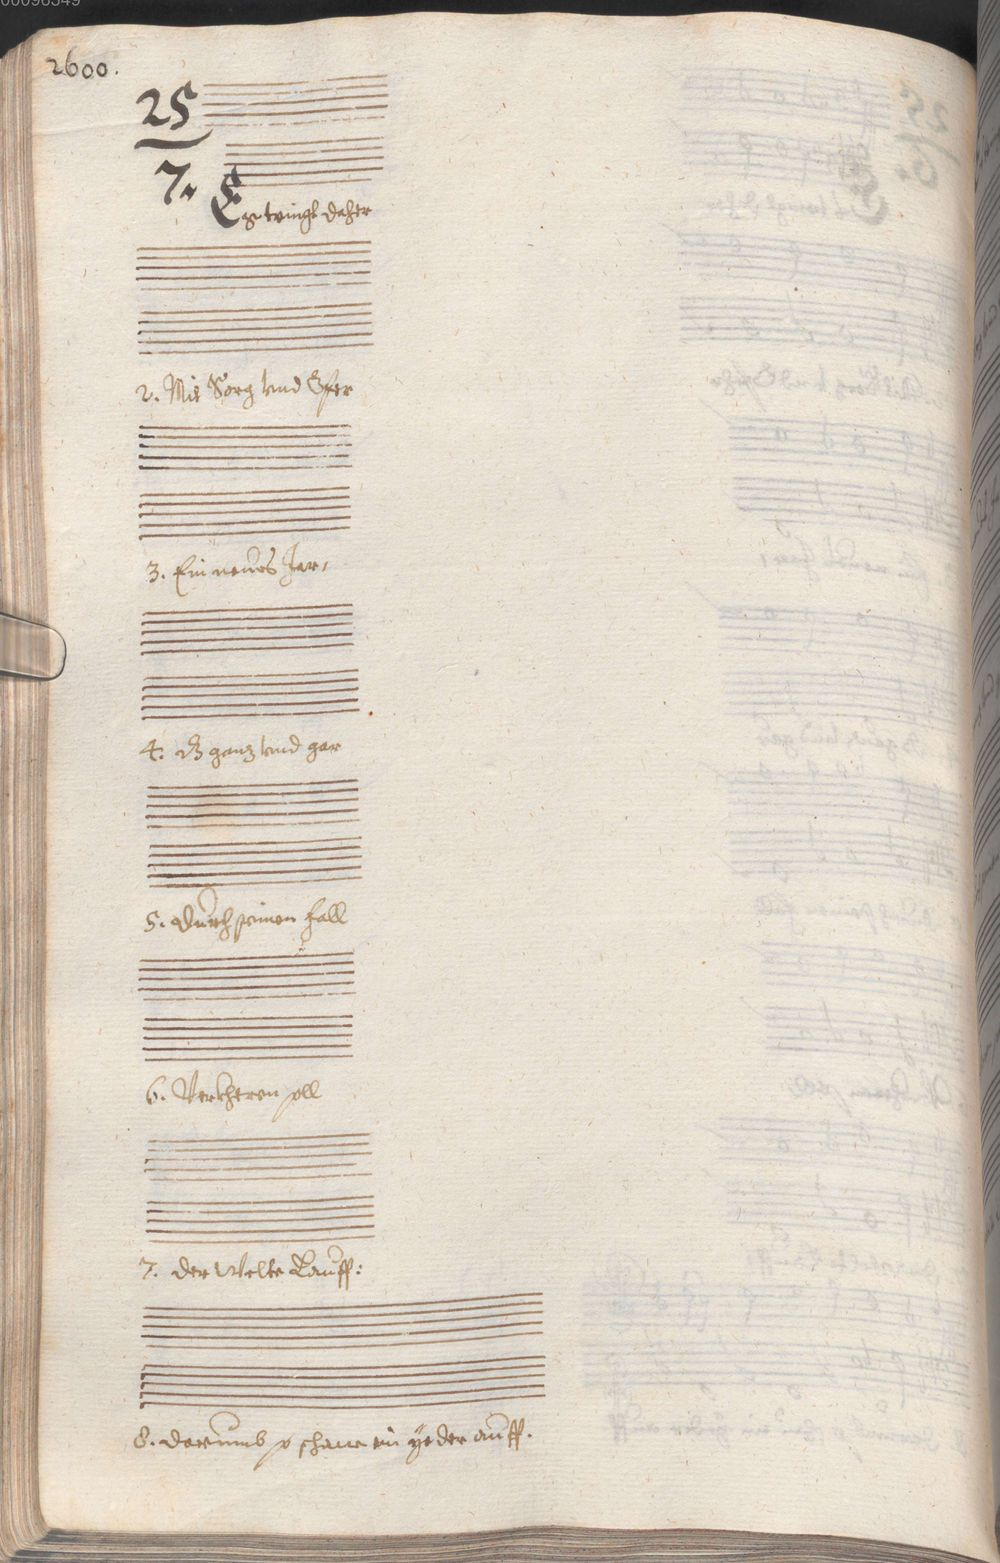 00096349
2600.
25
7.
Es zwingt daher
2. Mit Sorg und Gfer
3. Ein neues Jar,
4. ganz und gar
5. durch seinen fall
6. Verkheren soll
7. der Welte Lauff:
8. darumb so schaue ein yeder auff.